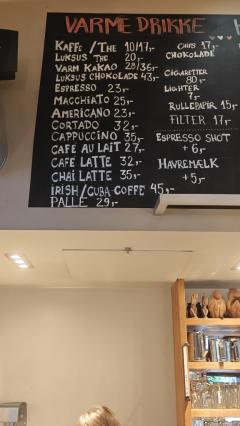 VARME DRIKKE
KAFFE / THE 10/17,-
LUKSUS THE 20,-
VARM KAKAO 28/36,-
LUKSUS CHOKOLADE 43,-
ESPRESSO 23,-
MACCHIATO 25,-
AMERICANO 23,-
CORTADO 32,-
CAPPUCCINO 35,-
CAFE AU LAIT 27,-
CAFE LATTE 32,-
CHAI LATTE 35,-
IRISH/CUBA-COFFE 45,-
PALLE 29,-
CHIPS 17,-
CHOKOLADE
CIGARETTER
80,-
LIGHTER
7,-
RULLEPAPIR 15,-
FILTER 17,-
ESPRESSO SHOT
+ 6,-
HAVREMÆLK
+ 5,-